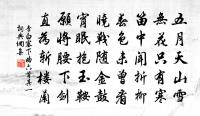 五月天山雪
無花只有寒
笛中聞折柳
春色未曾看
曉戰隨金鼓
宵眠抱玉鞍
願將腰下劍
直為斬樓蘭
李白塞下曲六首其一